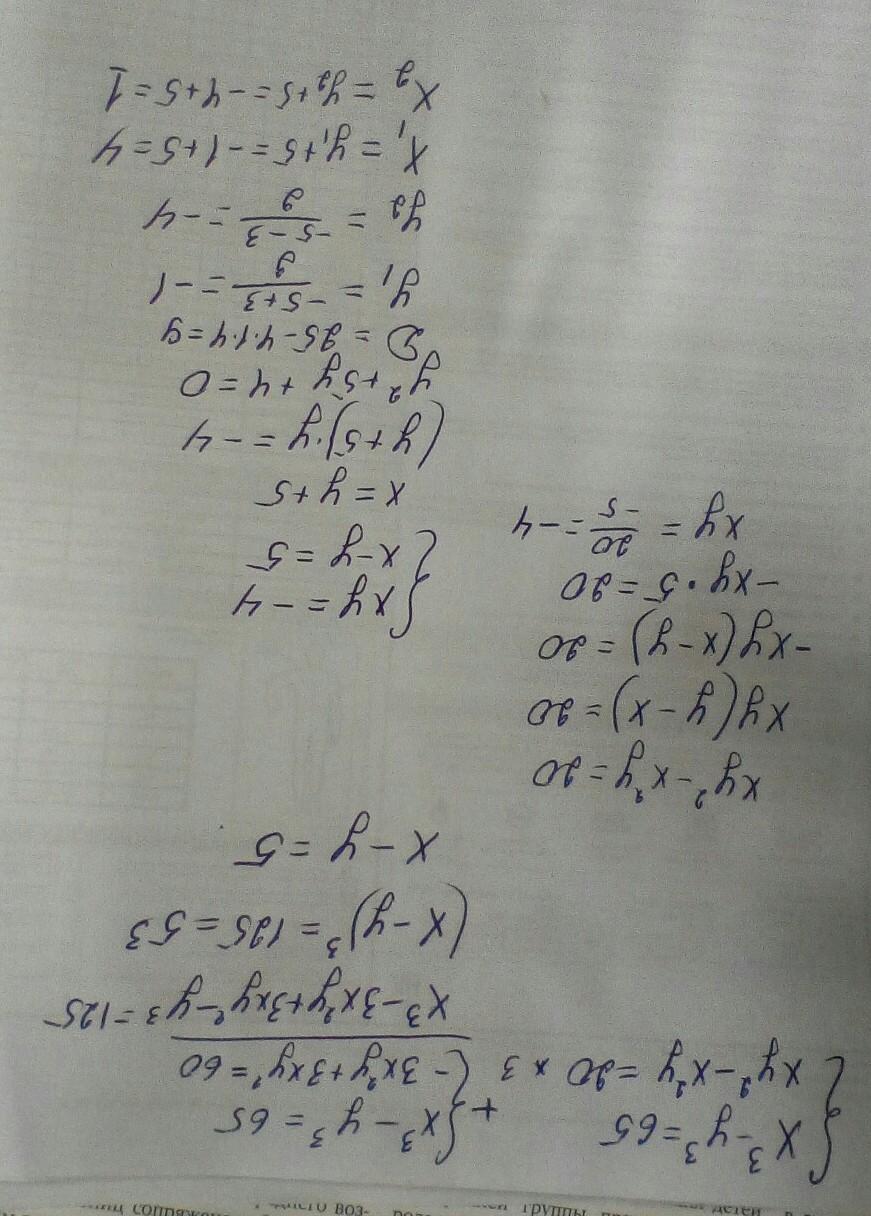 { x³ - y³ = 65
xy² - x²y = 20 × 3
+ { x³ - y³ = 65
- 3x²y + 3xy² = 60
x³ - 3x²y + 3xy² - y³ = 125
(x - y)³ = 125 = 5³
x - y = 5
xy² - x²y = 20
xy(y - x) = 20
-xy(x - y) = 20
-xy · 5 = 20
xy = 20/-5 = -4
{ xy = -4
x - y = 5
x = y + 5
(y + 5)·y = -4
y² + 5y + 4 = 0
D = 25 - 4·1·4 = 9
y₁ = -5+3/2 = -1
y₂ = -5-3/2 = -4
x₁ = y₁ + 5 = -1 + 5 = 4
x₂ = y₂ + 5 = -4 + 5 = 1